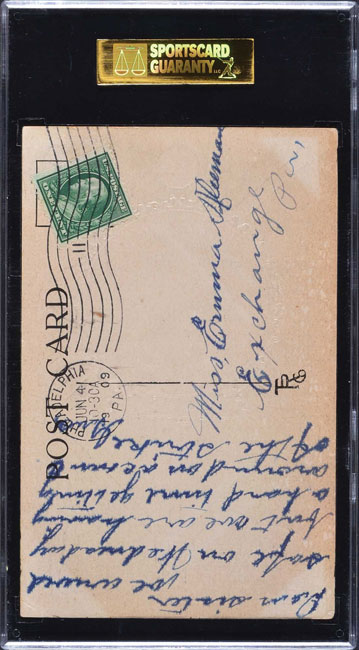 SPORTSCARD
GUARANTY LLC
POST CARD
PHILADELPHIA
JUN 4
10-30A
1909
PA.
Miss Emma
Exchange
Pa,
Dear sister
We arrived
safe on Wednesday
but we are having
a hard time getting
around on account
of the strike